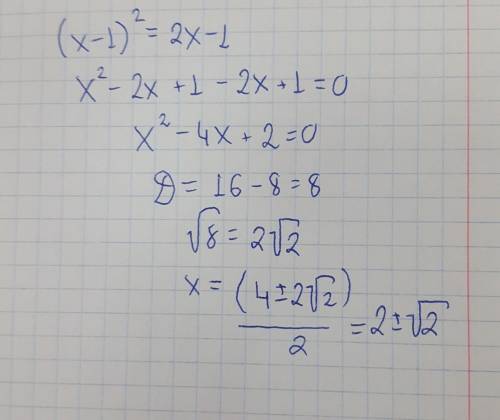 (x-1)² = 2x-1
x² - 2x + 1 - 2x + 1 = 0
x² - 4x + 2 = 0
D = 16 - 8 = 8
√8 = 2√2
x = (4±2√2)/2 = 2±√2